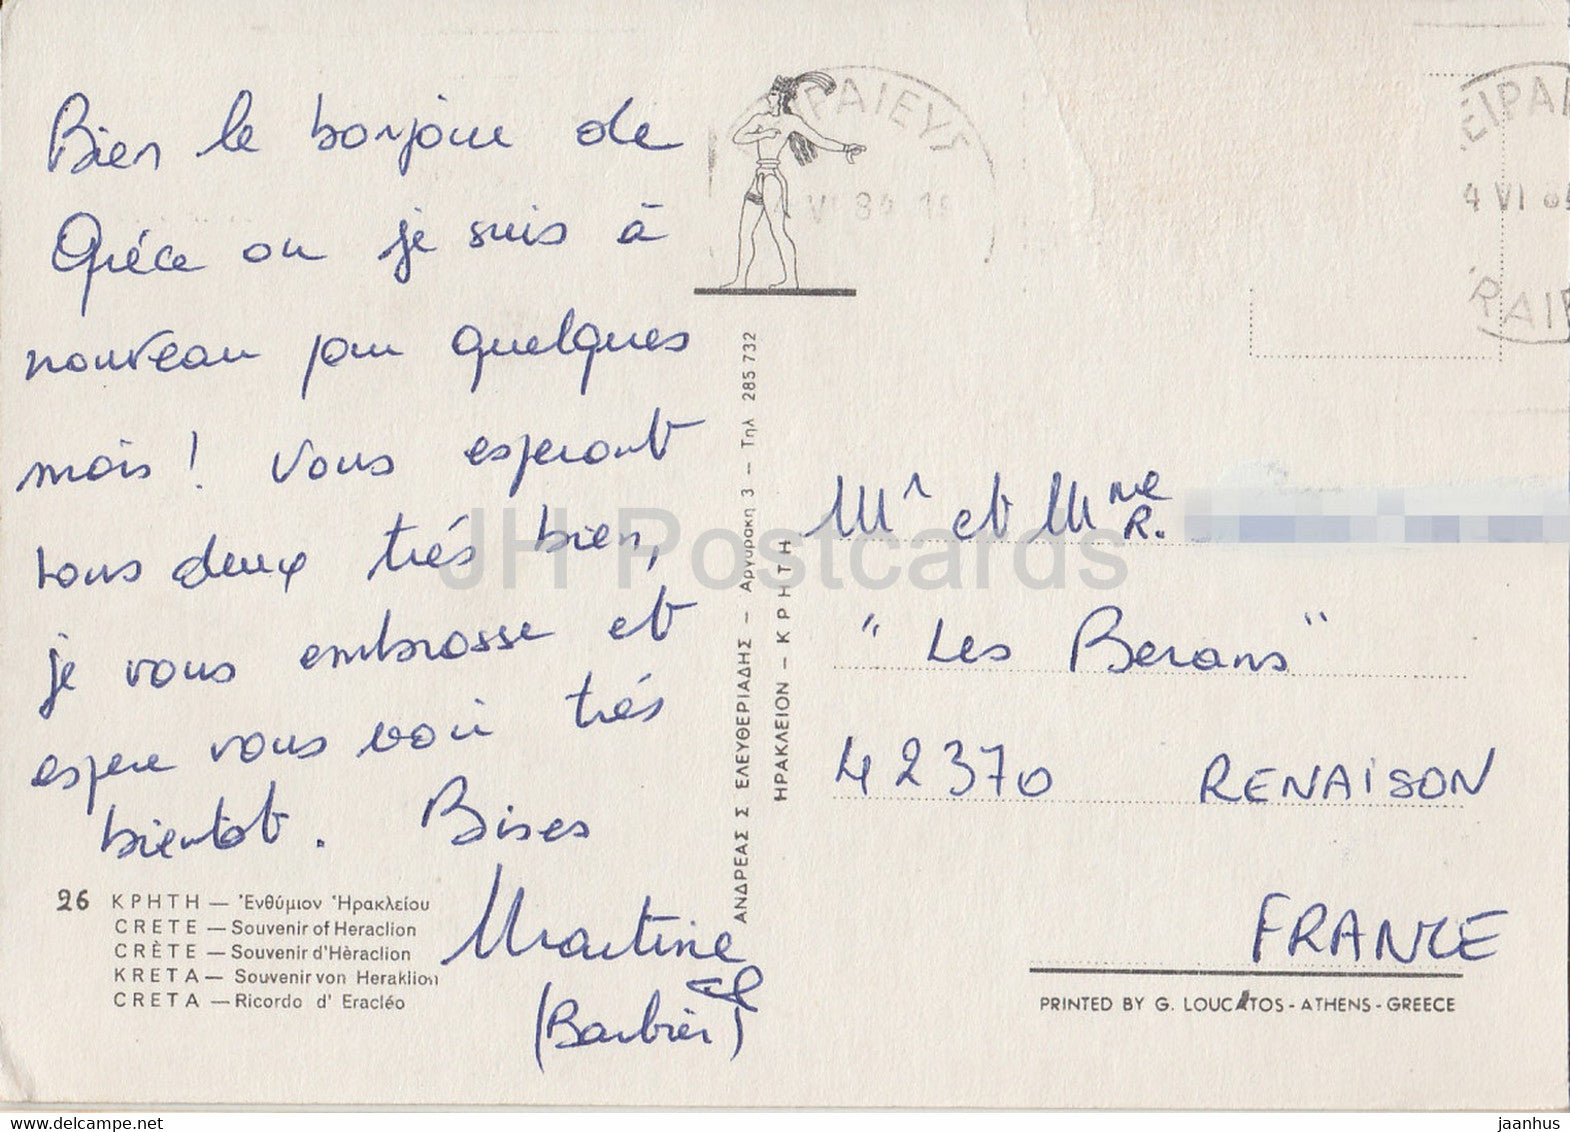 Bien le bonjour de
Grèce ou je suis à
nouveau pour quelques
mois ! Vous esperant
tous deux trés bien,
je vous embrasse et
espere vous voir trés
bientot. Bises
Martine
(Barbier)
26 ΚΡΗΤΗ — Ἐνθύμιον Ἡρακλείου
CRETE — Souvenir of Heraclion
CRÈTE — Souvenir d'Hèraclion
KRETA — Souvenir von Heraklion
CRETA — Ricordo d' Eracléo
ΑΝΔΡΕΑΣ Σ ΕΛΕΥΘΕΡΙΑΔΗΣ — Αργυράκη 3 — Τηλ 285 732
ΗΡΑΚΛΕΙΟΝ - ΚΡΗΤΗ
ΡΑΙΕΥΣ
VI 84 18
ΕΙΡΑΙ
4 VI 84
ΡΑΙΕ
Mr et Mme
R.
"Les Berans"
42370 RENAISON
FRANCE
PRINTED BY G. LOUCATOS - ATHENS - GREECE
JH Postcards
www.delcampe.net
jaanhus